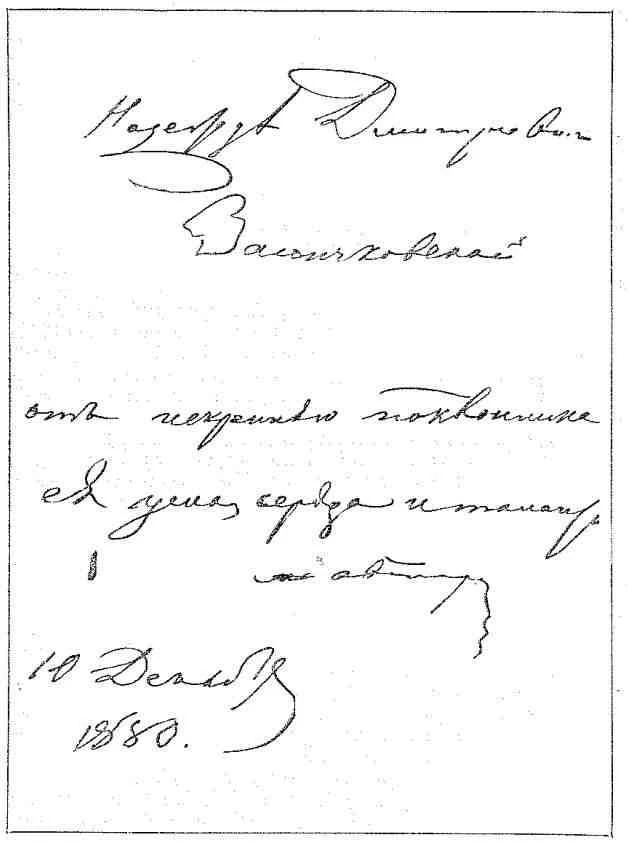 Надеждѣ Дмитріевнѣ
Заіончковской
отъ искренняго поклонника
ея ума, сердца и таланта
авторъ
10 Декабря
1880.